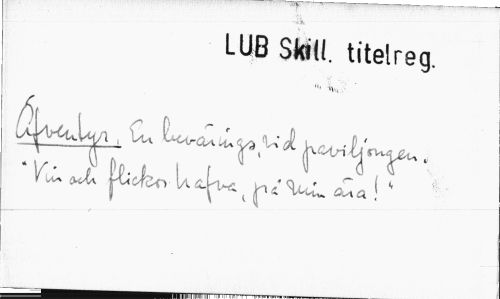 LUB Skill. titelreg.
Äfventyr. En bevärings, vid paviljongen.
"Vin och flickor hafva, på min ära!"